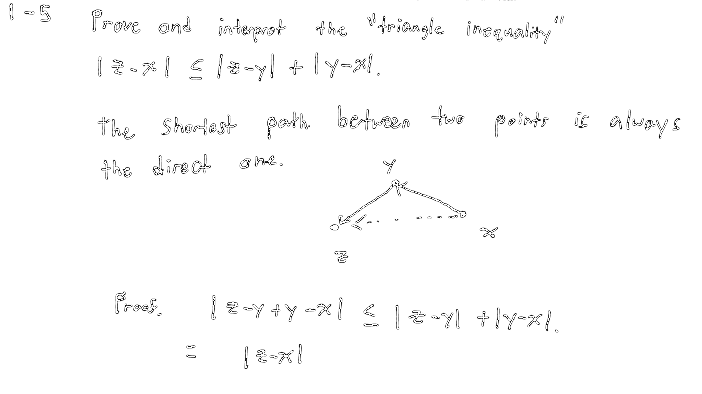 1-5 Prove and interpret the "triangle inequality"
|z-x| ≤ |z-y| + |y-x|.
the shortest path between two points is always
the direct one.
y
x
z
Proof. |z-y+y-x| ≤ |z-y| + |y-x|.
= |z-x|